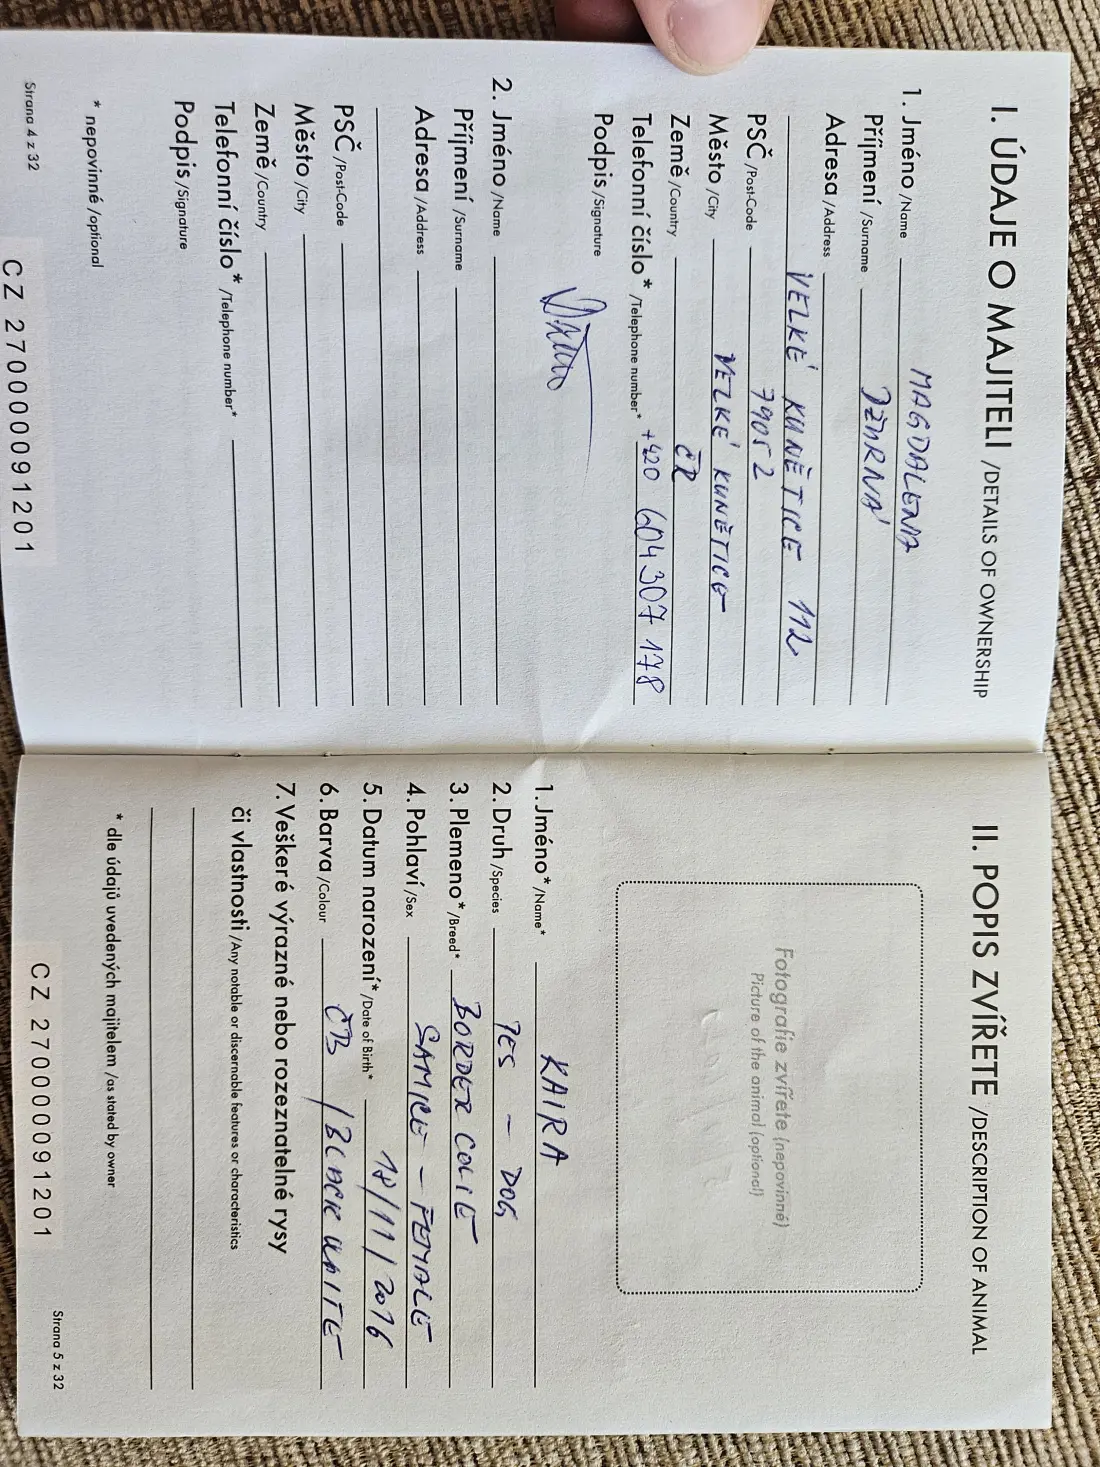 I. ÚDAJE O MAJITELI /DETAILS OF OWNERSHIP
1. Jméno /Name MAGDALENA
Příjmení /Surname DŽURNÁ
Adresa /Address
VELKÉ KUNĚTICE 112
PSČ /Post-Code 79052
Město /City VELKÉ KUNĚTICE
Země /Country ČR
Telefonní číslo* /Telephone number* +420 604 307 178
Podpis /Signature
2. Jméno /Name
Příjmení /Surname
Adresa /Address
PSČ /Post-Code
Město /City
Země /Country
Telefonní číslo* /Telephone number*
Podpis /Signature
* nepovinné /optional
Strana 4 z 32
CZ 2700000091201
II. POPIS ZVÍŘETE /DESCRIPTION OF ANIMAL
Fotografie zvířete (nepovinné)
Picture of the animal (optional)
1. Jméno* /Name* KAIRA
2. Druh /Species PES - DOG
3. Plemeno* /Breed* BORDER COLIE
4. Pohlaví /Sex SAMICE - FEMALE
5. Datum narození* /Date of Birth* 18/11/2016
6. Barva /Colour ČB /BLACK WHITE
7. Veškeré výrazné nebo rozeznatelné rysy
či vlastnosti /Any notable or discernable features or characteristics
* dle údajů uvedených majitelem /as stated by owner
CZ 2700000091201
Strana 5 z 32